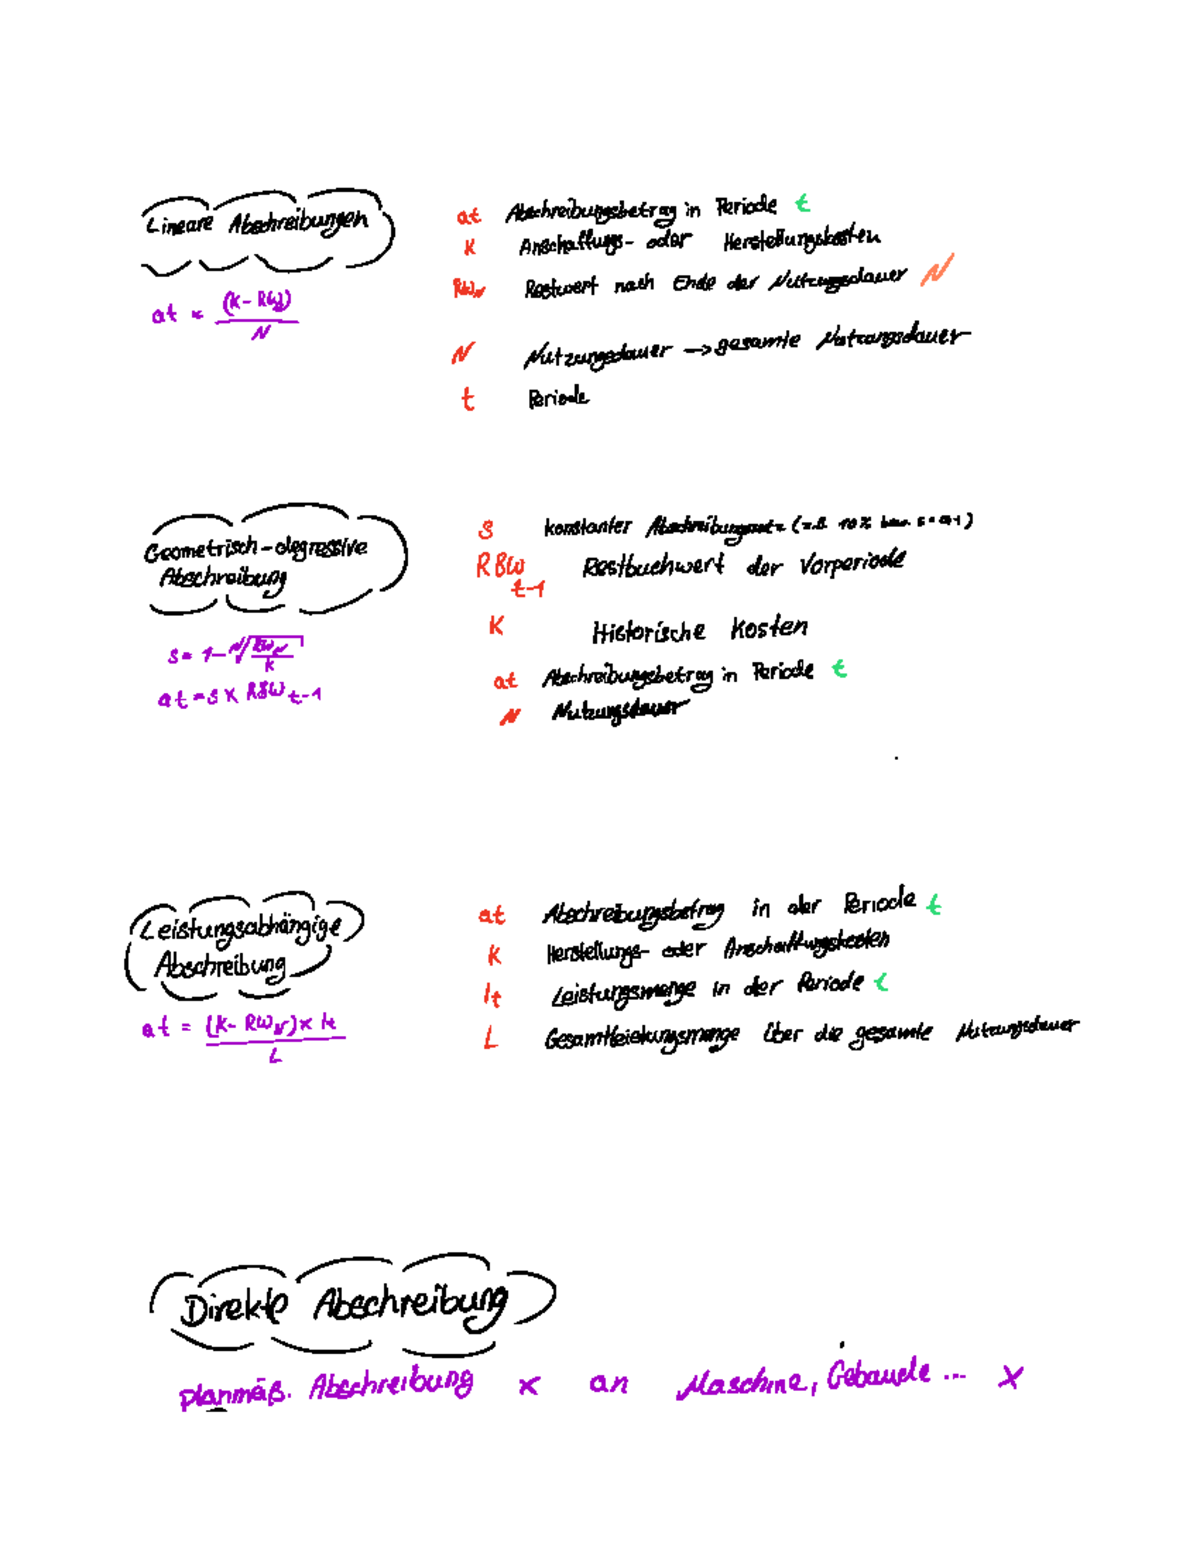 Lineare Abschreibungen
at = (K - RWN) / N
at Abschreibungsbetrag in Periode t
K Anschaffungs- oder Herstellungskosten
RWN Restwert nach Ende der Nutzungsdauer N
N Nutzungsdauer → gesamte Nutzungsdauer
t Periode
Geometrisch-degressive
Abschreibung
s = 1 - N√(RWN / K)
at = s x RBW t-1
s konstanter (z.B. 10%
RBW t-1 Restbuchwert der Vorperiode
K Historische Kosten
at Abschreibungsbetrag in Periode t
N Nutzungsdauer
Leistungsabhängige
Abschreibung
at = (K - RWN) x lt / L
at Abschreibungsbetrag in der Periode t
K Herstellungs- oder Anschaffungskosten
lt Leistungsmenge in der Periode t
L Gesamtleistungsmenge über die gesamte Nutzungsdauer
Direkte Abschreibung
planmäß. Abschreibung x an Maschine, Gebäude ... x